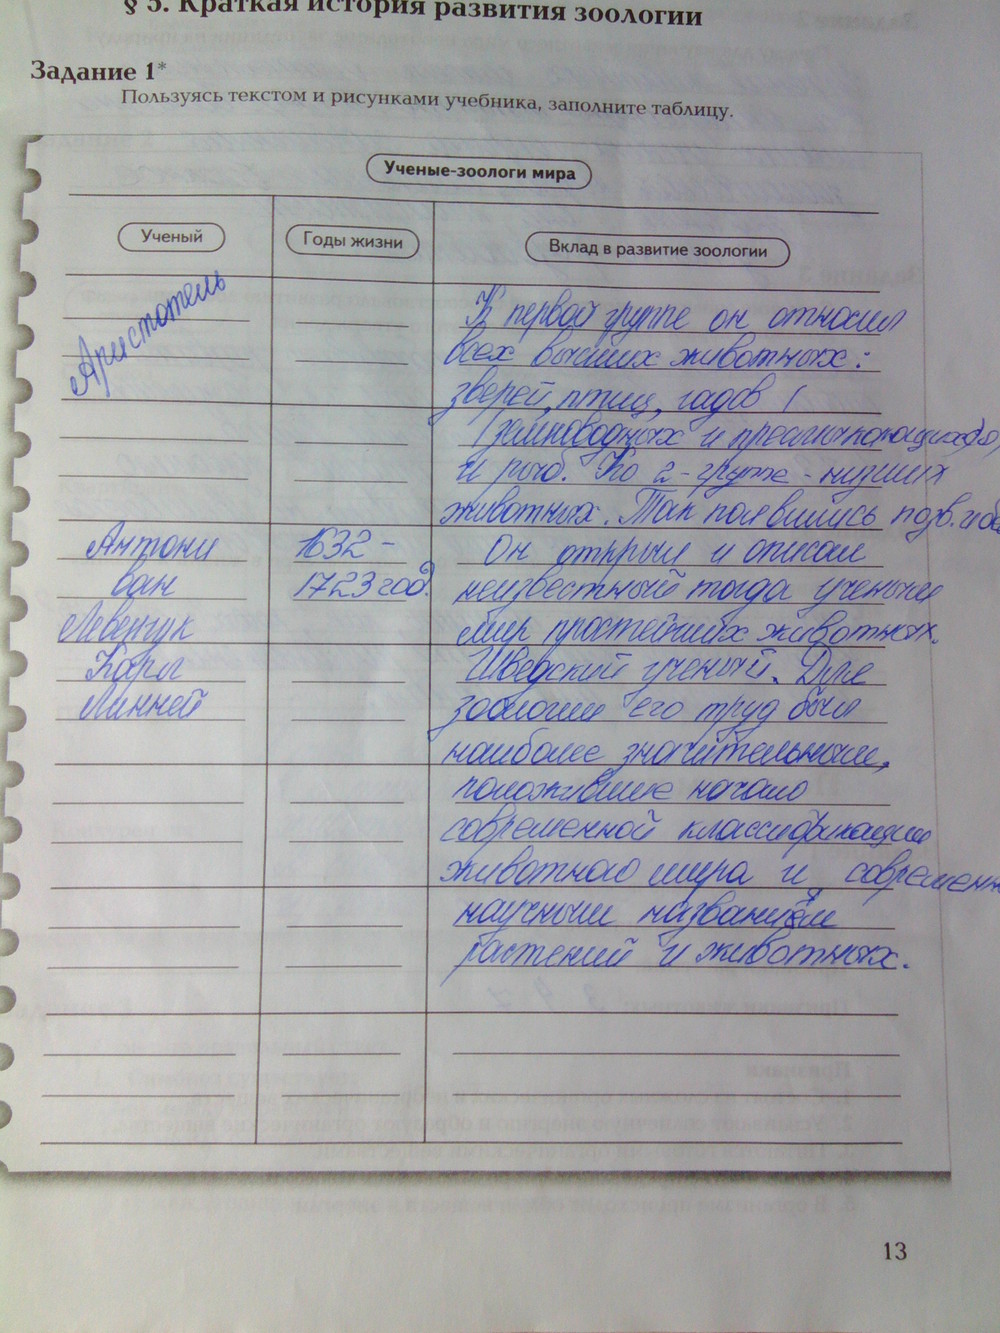 § 5. Краткая история развития зоологии
Задание 1*
Пользуясь текстом и рисунками учебника, заполните таблицу.
Ученые-зоологи мира
Ученый
Годы жизни
Вклад в развитие зоологии
Аристотель
К первой группе он относил
всех высших животных:
зверей, птиц, гадов (
(земноводных и пресмыкающихся)
и рыб. Ко 2-группе - низших
животных. Так появились позв. и без
Антони
ван
Левенгук
1632 -
1723 год.
Он открыл и описал
неизвестный тогда ученым
мир простейших животных.
Карл
Линней
Шведский ученый. Для
зоологии его труд был
наиболее значительным,
положившие начало
современной классификации
животного мира и современн
научным названием
растений и животных.
13